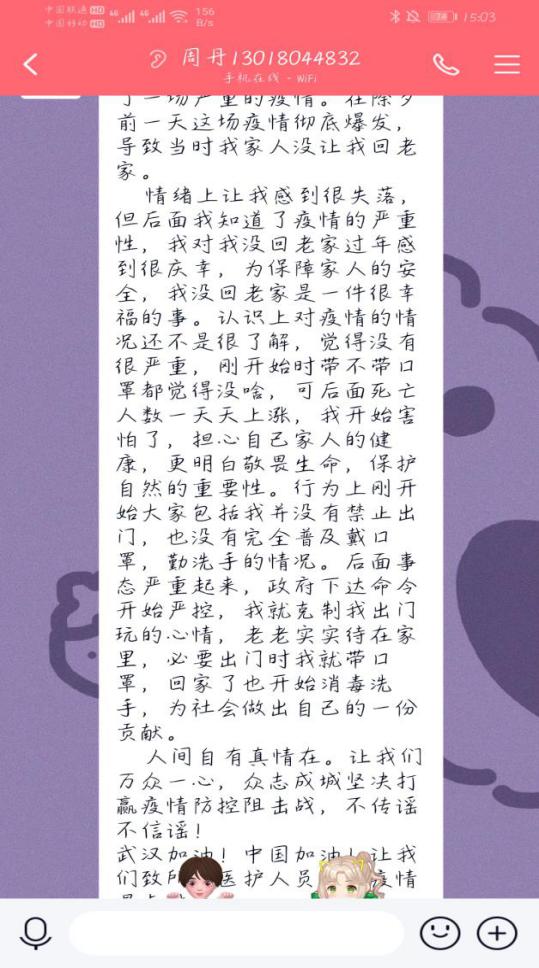 中国联通 HD 4G 4G 156 B/s 15:03
中国移动 HD
周丹13018044832
手机在线 - WiFi
了一场严重的疫情。在除夕
前一天这场疫情彻底爆发，
导致当时我家人没让我回老
家。
情绪上让我感到很失落，
但后面我知道了疫情的严重
性，我对我没回老家过年感
到很庆幸，为保障家人的安
全，我没回老家是一件很幸
福的事。认识上对疫情的情
况还不是很了解，觉得没有
很严重，刚开始时带不带口
罩都觉得没啥，可后面死亡
人数一天天上涨，我开始害
怕了，担心自己家人的健
康，更明白敬畏生命，保护
自然的重要性。行为上刚开
始大家包括我并没有禁止出
门，也没有完全普及戴口
罩，勤洗手的情况。后面事
态严重起来，政府下达命令
开始严控，我就克制我出门
玩的心情，老老实实待在家
里，必要出门时我就带口
罩，回家了也开始消毒洗
手，为社会做出自己的一份
贡献。
人间自有真情在。让我们
万众一心，众志成城坚决打
赢疫情防控阻击战，不传谣
不信谣！
武汉加油！中国加油！让我
们致 医护人员 疫情